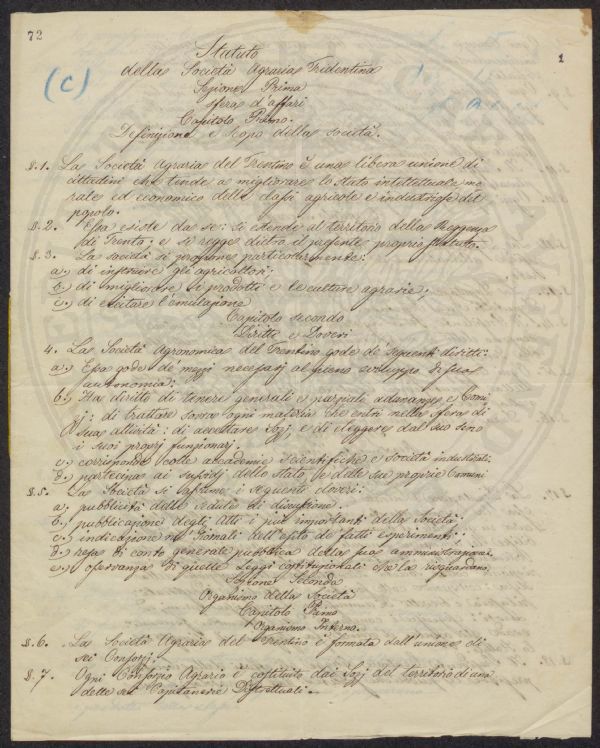 72
1
(C)
Statuto
della Società Agraria Tridentina
Sezione Prima
sfera d'affari
Capitolo Primo.
Definizione e scopo della società.
§.1. La Società Agraria del Trentino è una libera unione di
cittadini che tende a migliorare lo stato intellettuale, mo
rale ed economico della classe agricola e industriosa del
popolo.
§.2. Essa esiste da se: si estende al territorio della Reggenza
di Trento; e si regge dietro il presente proprio statuto.
§.3. La società si propone particolarmente:
a.) di istruire gli agricoltori;
b.) di migliorare i prodotti e le culture agrarie;
c.) di eccitare l'emulazione
Capitolo secondo
Diritti e Doveri
4. La Società Agronomica del Trentino gode de' seguenti diritti:
a.) Essa gode de' mezzi necessarj al pieno sviluppo di sua
autonomia:
b.) Ha diritto di tenere generali e parziali adunanze e Comi
zj: di trattare sovra ogni materia che entri nella sfera di
sua attività: di accettare Sozj, e di eleggere dal suo seno
i suoi proprj funzionarj.
c.) corrisponde colle accademie scientifiche e società industriali.
d.) partecipa ai sussidj dello stato, e delle sue proprie Comuni
§.5. La Società si impone i seguenti doveri:
a.) pubblicità delle sedute di discussione.
b.) pubblicazione degli Atti i più importanti della Società;
c.) indicazione ne' Giornali dell'esito de' fatti esperimenti:
d.) resa di conto generale pubblica della sua amministrazione.
e.) osservanza di quelle Leggi costituzionali che la risguardano.
Sezione Seconda
Organismo della Società
Capitolo Primo
Organismo Interno.
§.6. La Società Agraria del Trentino è formata dall'unione di
sei Consorzj:
§.7. Ogni Consorzio Agrario è costituito dai Sozj del territorio di una
delle sei Capitanerie Distrettuali.